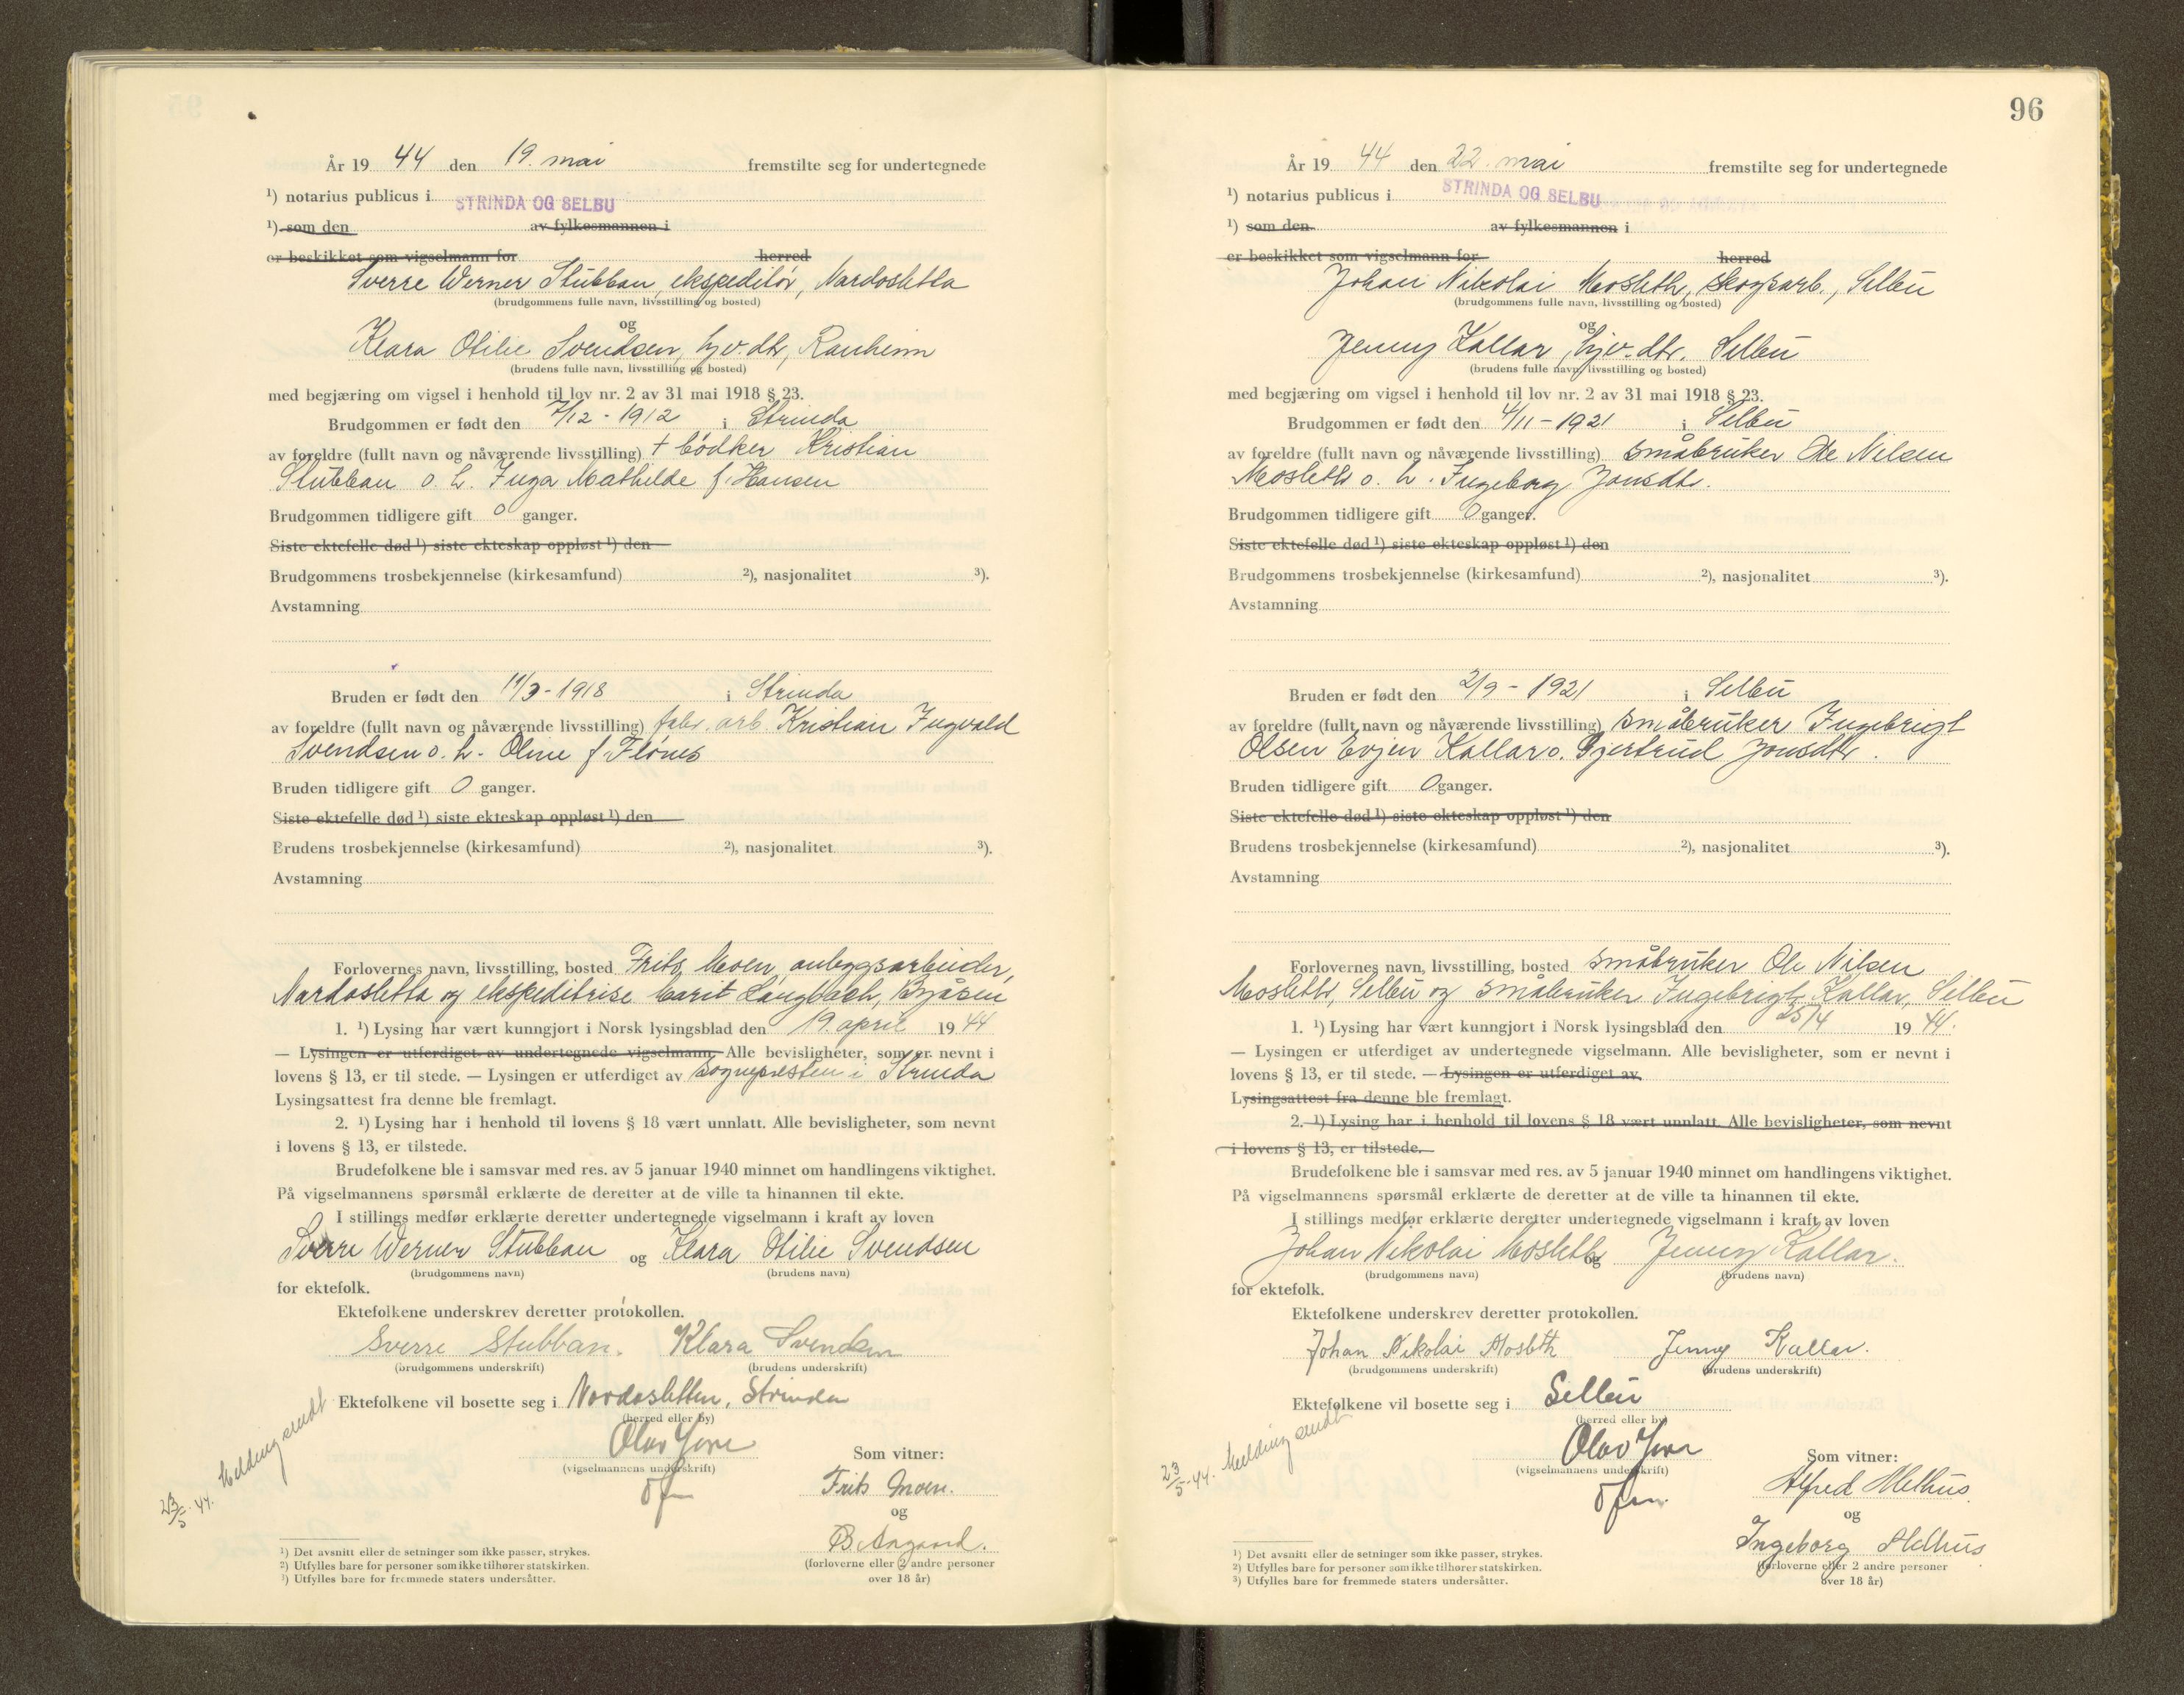 År 19 44 den 19. mai fremstilte seg for undertegnede
¹) notarius publicus i STRINDA OG SELBU
¹) som den av fylkesmannen i
er beskikket som vigselmann for herred
Sverre Werner Stubban, ekspeditör, Nardosletta
(brudgommens fulle navn, livsstilling og bosted)
og
Klara Otilie Svendsen, hjv. dtr, Ranheim
(brudens fulle navn, livsstilling og bosted)
med begjæring om vigsel i henhold til lov nr. 2 av 31 mai 1918 § 23.
Brudgommen er født den 7/12 - 1912 i Strinda
av foreldre (fullt navn og nåværende livsstilling) + bödker Kristian
Stubban o. h. Inga Mathilde f. Hansen
Brudgommen tidligere gift 0 ganger.
Siste ektefelle død ¹) siste ekteskap oppløst ¹) den
Brudgommens trosbekjennelse (kirkesamfund) ²), nasjonalitet ³).
Avstamning
Bruden er født den 11/3 - 1918 i Strinda
av foreldre (fullt navn og nåværende livsstilling) fabr. arb. Kristian Ingvald
Svendsen o. h. Oline f. Flönes
Bruden tidligere gift 0 ganger.
Siste ektefelle død ¹) siste ekteskap oppløst ¹) den
Brudens trosbekjennelse (kirkesamfund) ²), nasjonalitet ³).
Avstamning
Forlovernes navn, livsstilling, bosted Frits Moen, anleggsarbeider,
Nardosletta og ekspeditrise Marit Langbach, Byåsen
1. ¹) Lysing har vært kunngjort i Norsk lysingsblad den 19. april 19 44
— Lysingen er utferdiget av undertegnede vigselmann. Alle bevisligheter, som er nevnt i
lovens § 13, er til stede. — Lysingen er utferdiget av sognepresten i Strinda
Lysingsattest fra denne ble fremlagt.
2. ¹) Lysing har i henhold til lovens § 18 vært unnlatt. Alle bevisligheter, som nevnt
i lovens § 13, er tilstede.
Brudefolkene ble i samsvar med res. av 5 januar 1940 minnet om handlingens viktighet.
På vigselmannens spørsmål erklærte de deretter at de ville ta hinannen til ekte.
I stillings medfør erklærte deretter undertegnede vigselmann i kraft av loven
Sverre Werner Stubban og Klara Otilie Svendsen
(brudgommens navn) (brudens navn)
for ektefolk.
Ektefolkene underskrev deretter protokollen.
Sverre Stubban. Klara Svendsen
(brudgommens underskrift) (brudens underskrift)
Ektefolkene vil bosette seg i Nardosletten, Strinda
(herred eller by)
Olav
(vigselmannens underskrift)
Som vitner:
Frits Moen.
og
B. Aagaard.
(forloverne eller 2 andre personer
over 18 år)
23/5-44. Melding sendt
¹) Det avsnitt eller de setninger som ikke passer, strykes.
²) Utfylles bare for personer som ikke tilhører statskirken.
³) Utfylles bare for fremmede staters undersåtter.
96
År 19 44 den 22. mai fremstilte seg for undertegnede
¹) notarius publicus i STRINDA OG SELBU
¹) som den av fylkesmannen i
er beskikket som vigselmann for herred
Johan Nikolai Mosleth, skogsarb., Selbu
(brudgommens fulle navn, livsstilling og bosted)
og
Jenny Kallar, hjv. dtr. Selbu
(brudens fulle navn, livsstilling og bosted)
med begjæring om vigsel i henhold til lov nr. 2 av 31 mai 1918 § 23.
Brudgommen er født den 4/11 - 1921 i Selbu
av foreldre (fullt navn og nåværende livsstilling) småbruker Ole Nilsen
Mosleth o. h. Ingeborg Jonsdtr.
Brudgommen tidligere gift 0 ganger.
Siste ektefelle død ¹) siste ekteskap oppløst ¹) den
Brudgommens trosbekjennelse (kirkesamfund) ²), nasjonalitet ³).
Avstamning
Bruden er født den 2/9 - 1921 i Selbu
av foreldre (fullt navn og nåværende livsstilling) småbruker Ingebrigt
Olsen Evjen Kallar o. Gjertrud Jonsdtr.
Bruden tidligere gift 0 ganger.
Siste ektefelle død ¹) siste ekteskap oppløst ¹) den
Brudens trosbekjennelse (kirkesamfund) ²), nasjonalitet ³).
Avstamning
Forlovernes navn, livsstilling, bosted småbruker Ole Nilsen
Mosleth, Selbu og småbruker Ingebrigt Kallar, Selbu
1. ¹) Lysing har vært kunngjort i Norsk lysingsblad den 25/4 19 44.
— Lysingen er utferdiget av undertegnede vigselmann. Alle bevisligheter, som er nevnt i
lovens § 13, er til stede. — Lysingen er utferdiget av
Lysingsattest fra denne ble fremlagt.
2. ¹) Lysing har i henhold til lovens § 18 vært unnlatt. Alle bevisligheter, som nevnt
i lovens § 13, er tilstede.
Brudefolkene ble i samsvar med res. av 5 januar 1940 minnet om handlingens viktighet.
På vigselmannens spørsmål erklærte de deretter at de ville ta hinannen til ekte.
I stillings medfør erklærte deretter undertegnede vigselmann i kraft av loven
Johan Nikolai Mosleth og Jenny Kallar.
(brudgommens navn) (brudens navn)
for ektefolk.
Ektefolkene underskrev deretter protokollen.
Johan Nikolai Mosleth Jenny Kallar.
(brudgommens underskrift) (brudens underskrift)
Ektefolkene vil bosette seg i Selbu
(herred eller by)
Olav
(vigselmannens underskrift)
Som vitner:
Alfred Melhus
og
Ingeborg Melhus
(forloverne eller 2 andre personer
over 18 år)
23/5-44. Melding sendt
¹) Det avsnitt eller de setninger som ikke passer, strykes.
²) Utfylles bare for personer som ikke tilhører statskirken.
³) Utfylles bare for fremmede staters undersåtter.